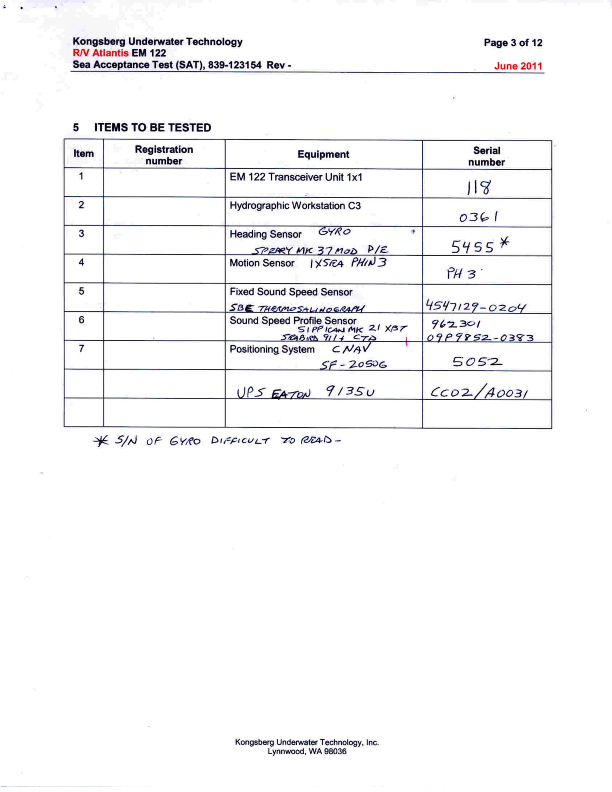 Kongsberg Underwater Technology Page 3 of 12
R/V Atlantis EM 122
Sea Acceptance Test (SAT), 839-123154 Rev - June 2011
5 ITEMS TO BE TESTED
Item Registration number Equipment Serial number
1 EM 122 Transceiver Unit 1x1 118
2 Hydrographic Workstation C3 0361
3 Heading Sensor GYRO *
SPERRY MK 37 MOD D/E 5455*
4 Motion Sensor IXSEA PHIN 3 PH 3
5 Fixed Sound Speed Sensor
SBE THERMOSALINOGRAPH 4547129-0204
6 Sound Speed Profile Sensor 962301
SIPPICAN MK 21 XBT
SEABIRD 911+ CTD 09P9852-0383
7 Positioning System CNAV
SF-2050G 5052
UPS EATON 9135U CC02/A0031
* S/N OF GYRO DIFFICULT TO READ-
Kongsberg Underwater Technology, Inc.
Lynnwood, WA 98036